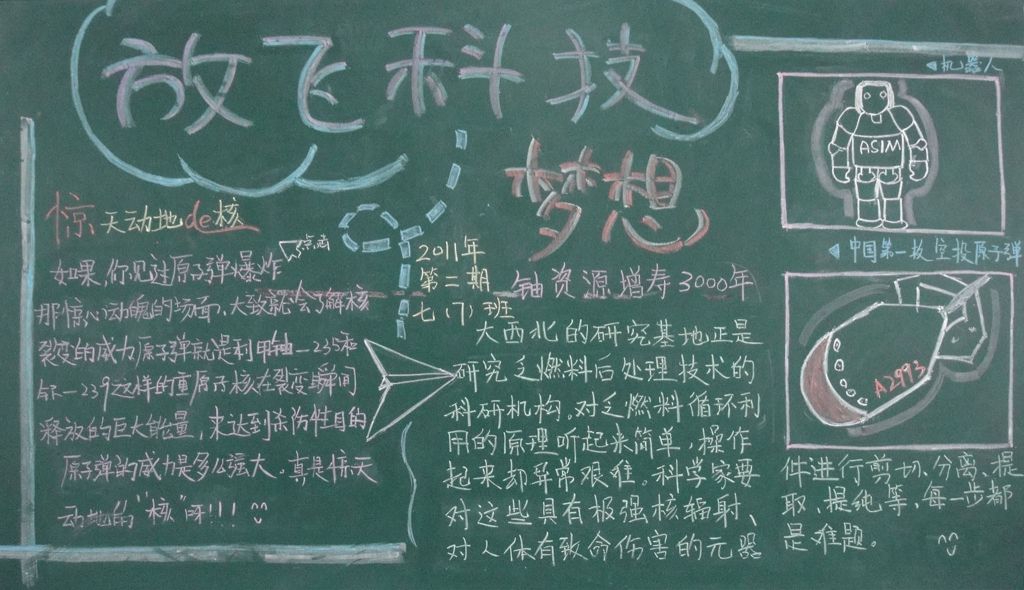 放飞科技
梦想
惊天动地de核
如果,你见过原子弹爆炸
那惊心动魄的场面,大致就会了解核
裂变的威力原子弹就是利用铀—235和
钚—239这样的重原子核在裂变瞬间
释放的巨大能量,来达到杀伤性目的
原子弹的威力是多么强大。真是惊天
动地的“核”呀!!!
2011年
第二期
七(7)班
铀资源增寿3000年
大西北的研究基地正是
研究乏燃料后处理技术的
科研机构。对乏燃料循环利
用的原理听起来简单,操作
起来却异常艰难。科学家要
对这些具有极强核辐射、
对人体有致命伤害的元器
件进行剪切、分离、提
取、提纯等,每一步都
是难题。
机器人
ASIM
中国第一枚空投原子弹
A2993